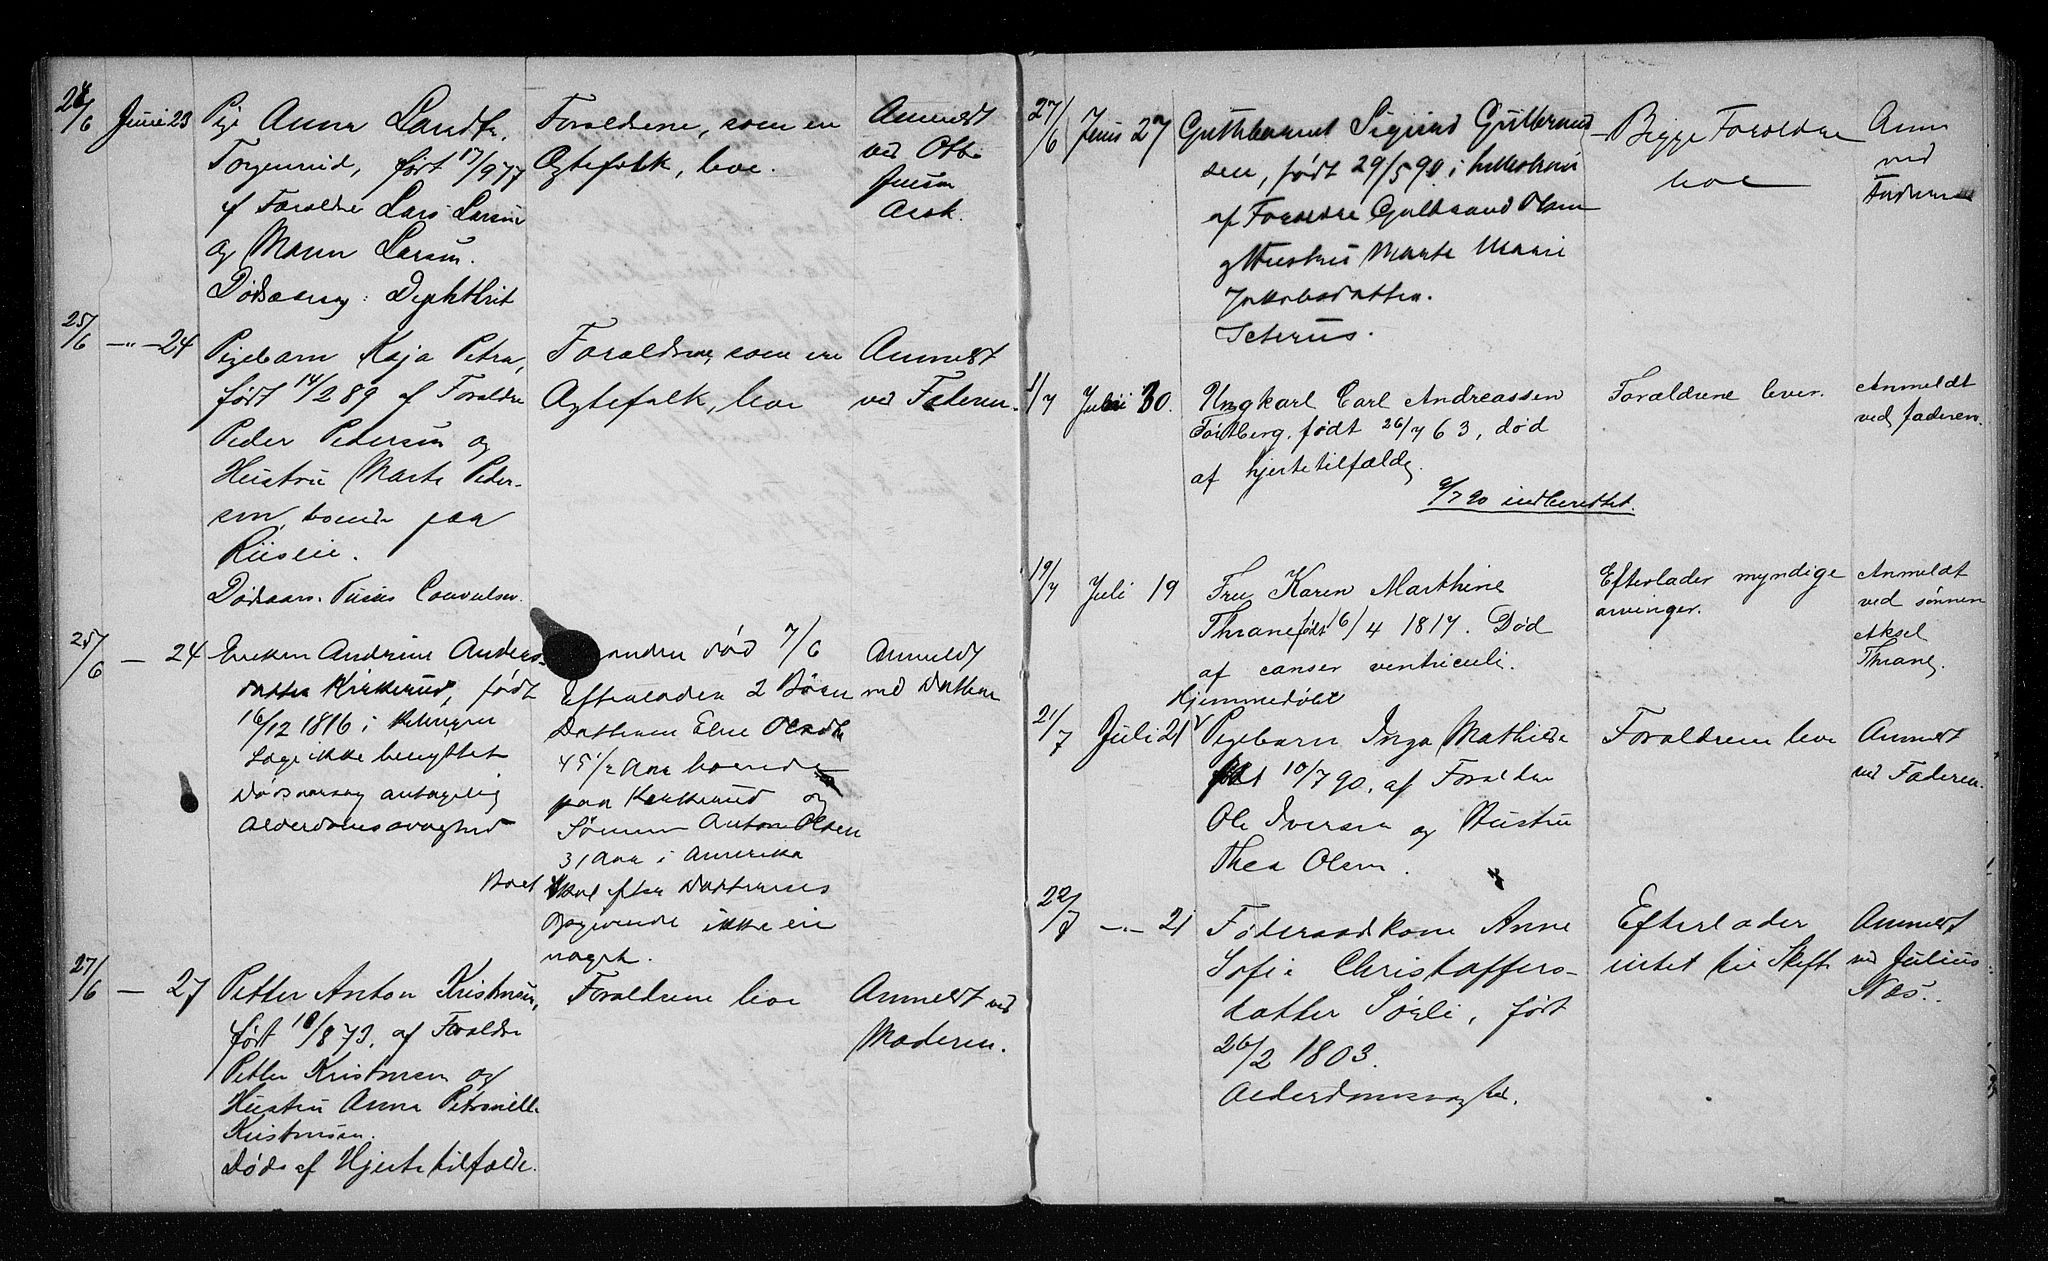 24/6 Juni 23 Pige Anna Landfa.
Torgenrud, født 17/9 77
af Foraldre Lars Larsen
og Maren Larsen.
Dødsaarsag: Diphthrit
Foraldrene, som er
Ægtefolk, leve.
Anmeldt
ved Otto
Jensen
Aask.
25/6 —"— 24 Pigebarn Kaja Petra,
født 14/2 89 af Foraldre
Peder Pedersen og
Hustru Marte Peder-
sen, boende paa
Riiseie.
Dødsaars. Tusis Convulsiv.
Foraldrene som ere
Ægtefolk, leve
Anmeldt
ved Faderen.
25/6 — 24 Enken Andrine Anders-
datter Kirkerud, født
16/12 1816 i
Læge ikke benyttet
Dødsaarsag antagelig
Alderdomssvaghed
Manden død 7/6
Efterlader 2 Börn
Datteren Eline Olsdtr
45 1/2 Aar boende
paa Kirkerud og
Sönnen Anton Olsen
31 Aar i Amerika
Boet skal efter Datterens
Opgivende ikke eie
noget.
Anmeldt
ved Datteren
27/6 — 27 Petter Anton Kristensen,
født 10/8 73, af Foraldre
Petter Kristensen og
Hustru Anna Petronille
Kristensen.
Døds af Hjertetilfælde.
Foraldrene leve
Anmeldt ved
Moderen.
27/6 Juni 27 Guttebarnet Sigurd Gulbrand
sen, født 29/5 90 i Lillestrøm
af Foraldre Gulbrand Olsen
og Hustru Marte Marie
Jakobsdatter.
Icterus.
Begge Foraldre
leve
Anm
ved
Faderen
1/7 Juni 30. Ungkarl Carl Andreassen
Tortberg, født 26/7 63, død
af hjertetilfælde.
9/7 90 indberettet.
Forældrene lever.
Anmeldt
ved faderen.
19/7 Juli 19 Fru Karen Marthine
Thrane født 16/4 1817. Død
af canser ventriculi.
Efterlader myndige
arvinger.
Anmeldt
ved sønnen
Aksel
Thrane.
Hjemmedøbt
21/7 Juli 21 Pigebarn Inga Mathilde
født 10/7 90, af Foraldre
Ole Iversen og Hustru
Thea Olsen.
Foraldrene leve
Anmeldt
ved Faderen.
22/7 —"— 21 Føderaadkone Anne
Sofie Christoffers-
datter Sörli, født
26/2 1803.
Alderdomssvaghed.
Efterlader
intet til Skifte
Anmeldt
ved Julius
Næs.